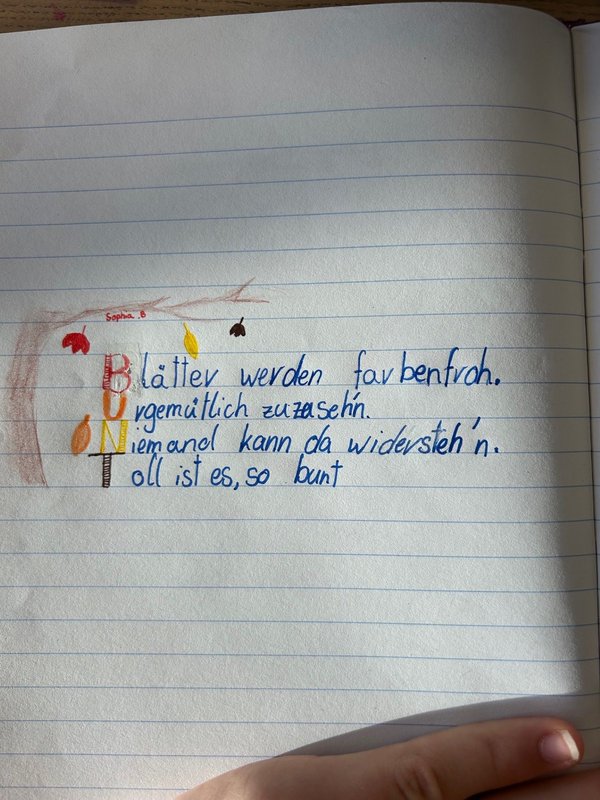 Sophia .B
Blätter werden farbenfroh.
Urgemütlich zuzusehn.
Niemand kann da widersteh'n.
Toll ist es, so bunt